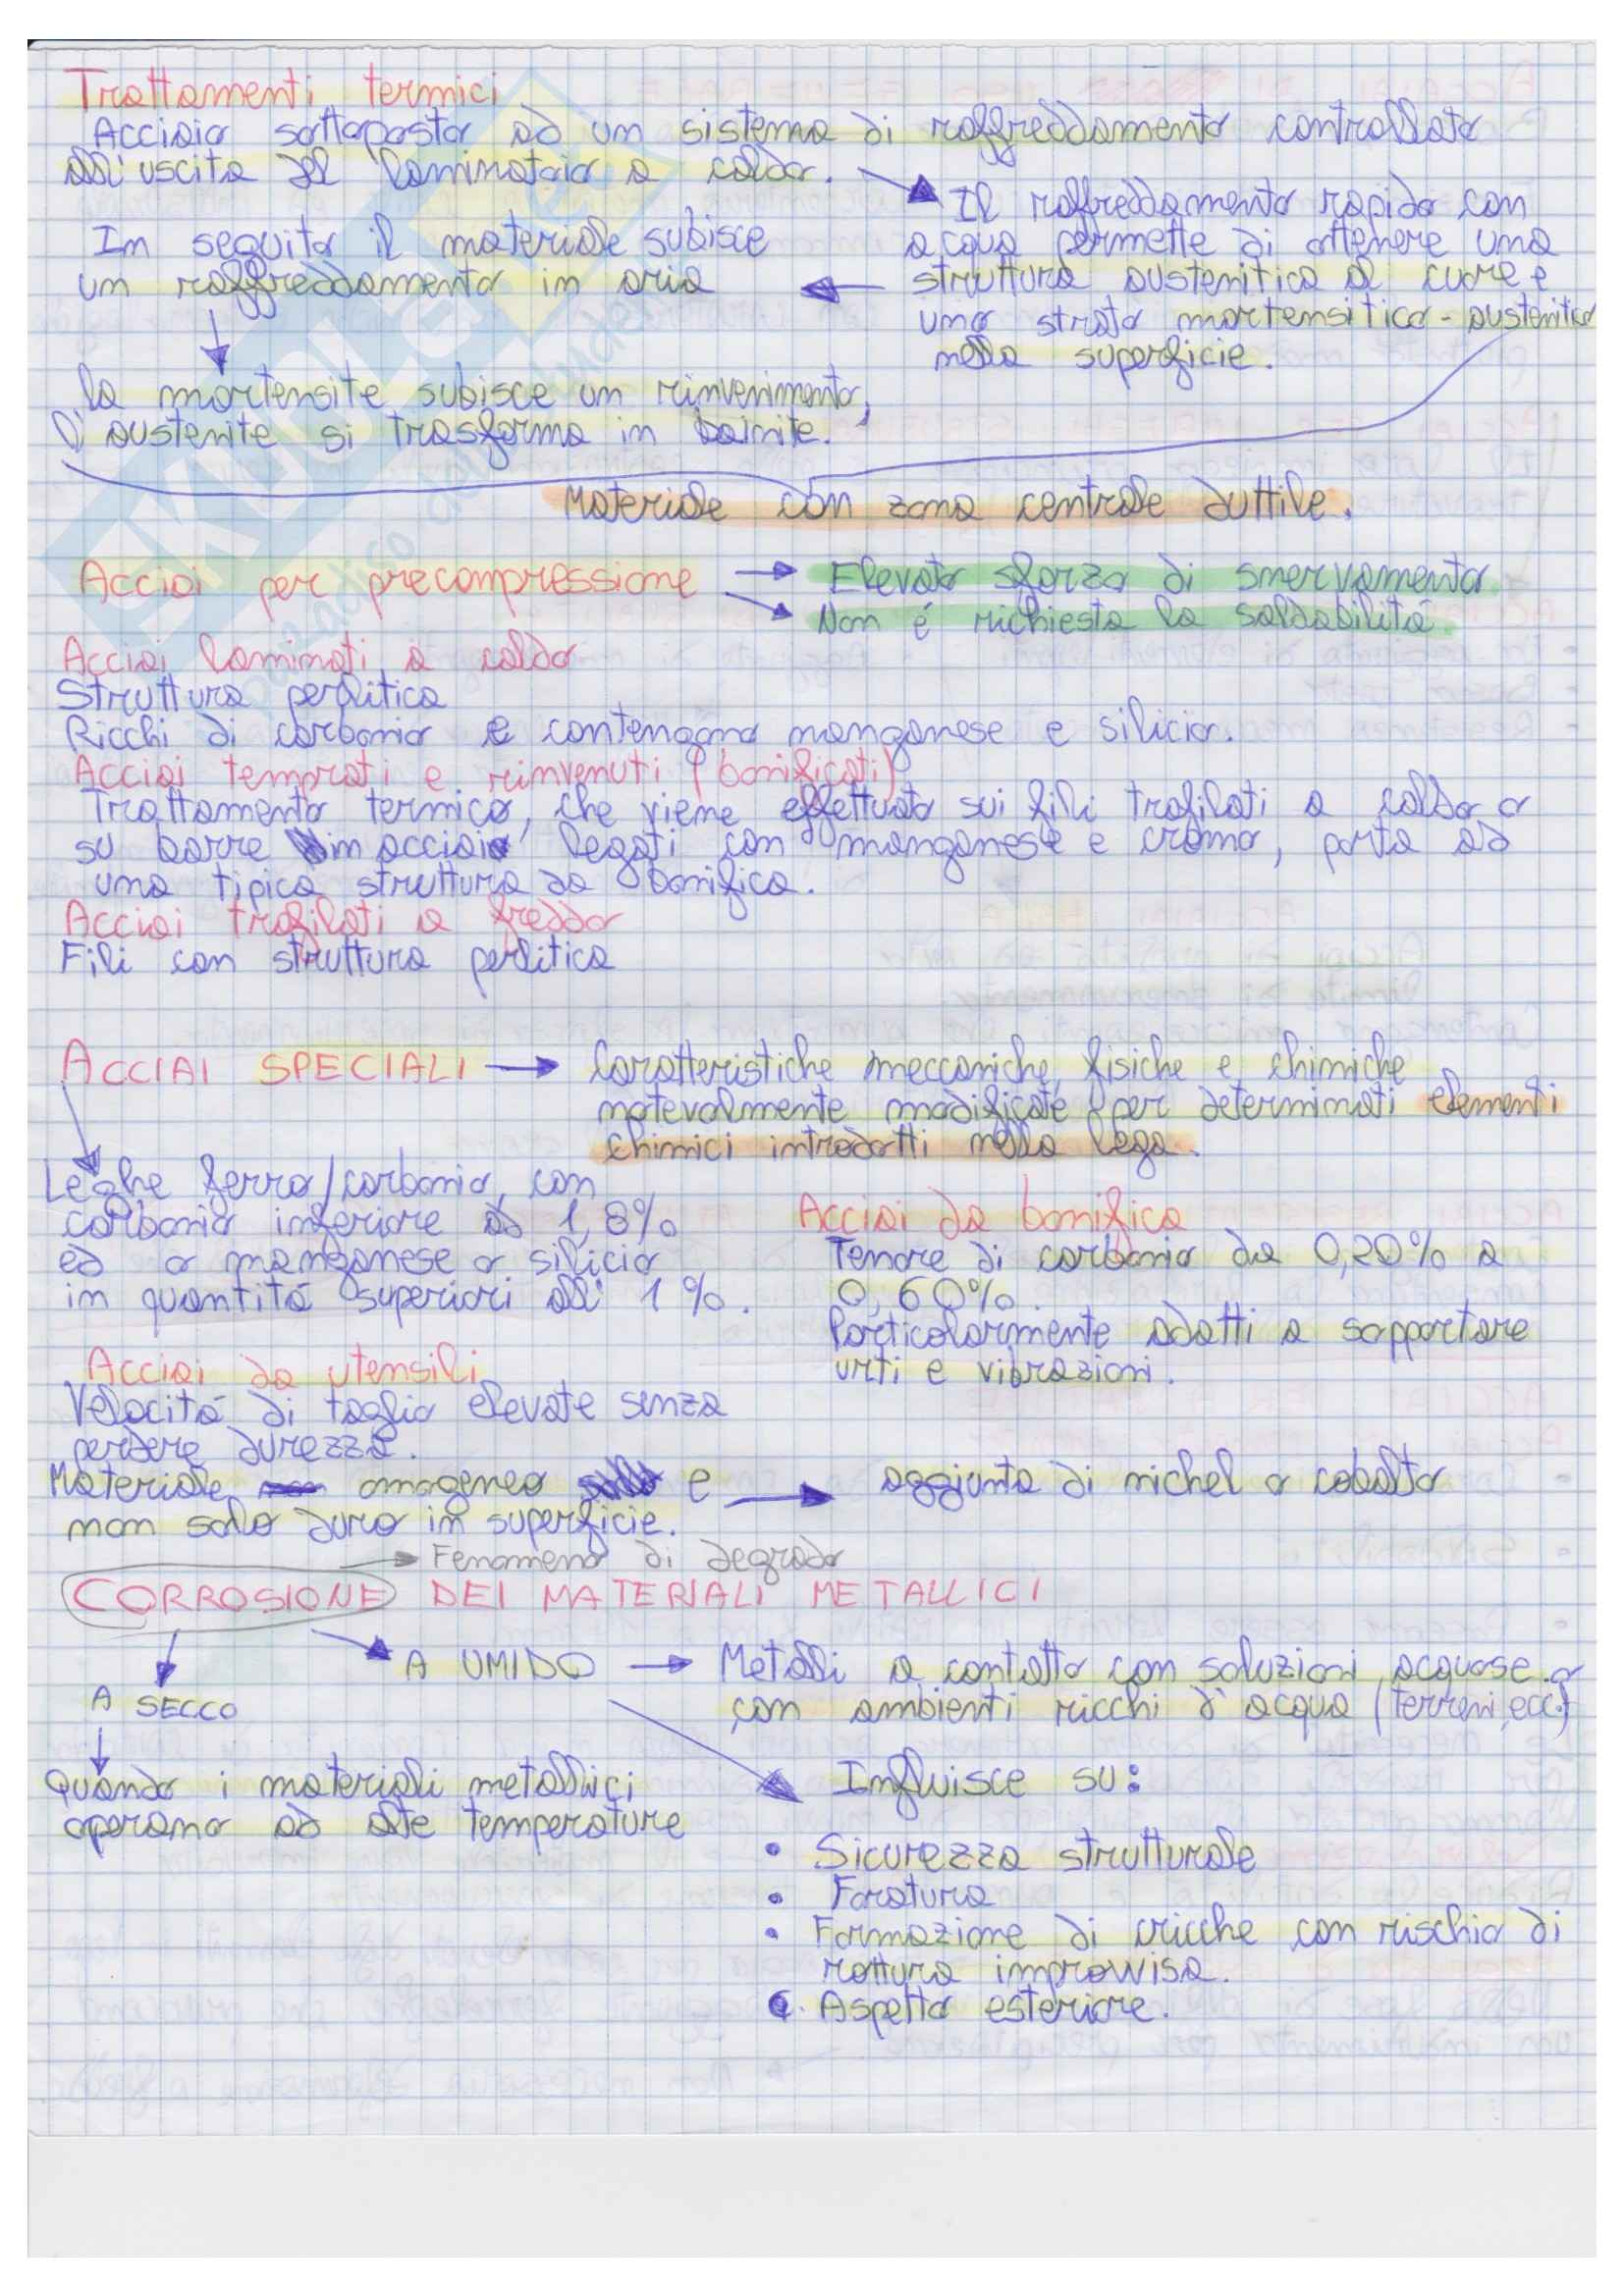 Trattamenti termici
Acciaio sottoposto ad un sistema di raffreddamento controllato
all'uscita del laminatoio a caldo.
Il raffreddamento rapido con
acqua permette di ottenere una
struttura austenitica al cuore e
uno strato martensitico-austenitico
nella superficie.
In seguito il materiale subisce
un raffreddamento in aria
la martensite subisce un rinvenimento,
l'austenite si trasforma in bainite.
Materiale con zona centrale duttile.
Acciai per precompressione
Elevato sforzo di snervamento
Non é richiesta la saldabilitá
Acciai laminati a caldo
Struttura perlitica
Ricchi di carbonio e contengono manganese e silicio.
Acciai temprati e rinvenuti (bonificati)
Trattamento termico, che viene effettuato sui fili trafilati a caldo o
su barre in acciaio legati con manganese e cromo, porta ad
una tipica struttura da bonifica.
Acciai trafilati a freddo
Fili con struttura perlitica
ACCIAI SPECIALI
Caratteristiche meccaniche, fisiche e chimiche
notevolmente modificate per determinati elementi
chimici introdotti nella lega.
Leghe ferro/carbonio, con
carbonio inferiore ad 1,8%
ed o manganese o silicio
in quantitá superiori all' 1%.
Acciai da bonifica
Tenore di carbonio da 0,20% a
0,60%.
Particolarmente adatti a sopportare
urti e vibrazioni.
Acciai da utensili
Velocitá di taglio elevate senza
perdere durezza.
Materiale omogeneo e
non solo duro in superficie.
aggiunta di nichel o cobalto
Fenomeno di degrado
CORROSIONE DEI MATERIALI METALLICI
A UMIDO
Metalli a contatto con soluzioni acquose o
con ambienti ricchi d'acqua (terreni, ecc.)
A SECCO
Quando i materiali metallici
operano ad alte temperature
Influisce su:
• Sicurezza strutturale
• Foratura
• Formazione di cricche con rischio di
rottura improvvisa.
• Aspetto esteriore.